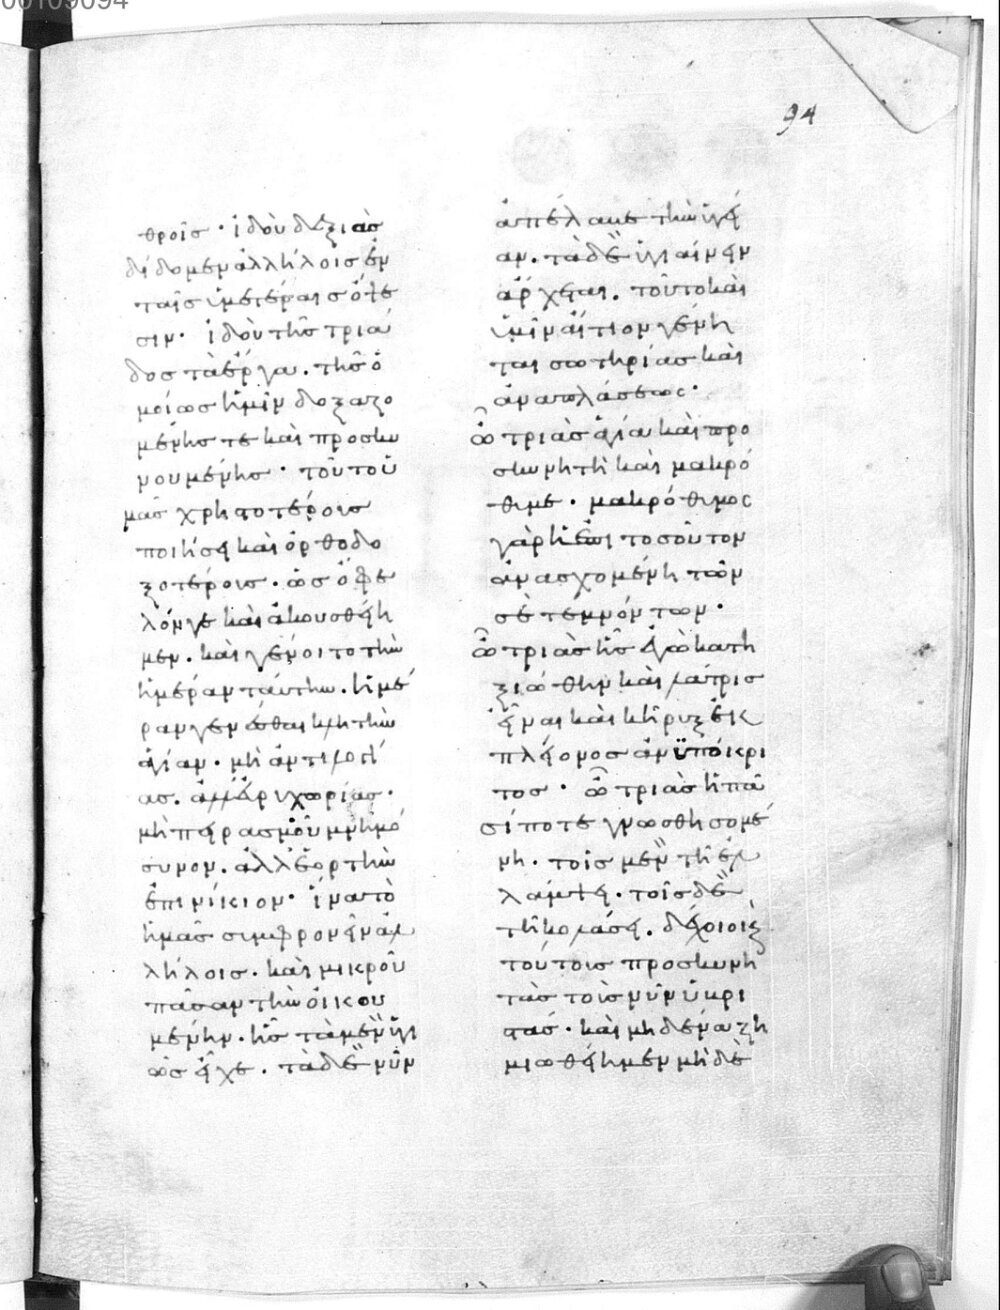 00109094
94
θροῖς · ἰδοὺ δεξιὰς
δίδομεν ἀλλήλοις ἐν
ταῖς ὑμετέραις ὄψε
σιν · ἰδοὺ τῆς τριά
δος τὰ ἔργα . τῆς ὁ
μοίως ἡμῖν δοξαζο
μένης τε καὶ προσκυ
νουμένης · τοῦτο ὑ
μᾶς χρηστοτέροις
ποιήσει καὶ ὀρθοδο
ξοτέροις . ὡς ὄφε
λόν γε καὶ ἀκουσθείη
μεν . καὶ γένοιτο τὴν
ἡμέραν ταύτην . ἡμέ
ραν γενέσθαι κλητὴν
ἁγίαν · μὴ ἀντιλογί
ας . ἀλλὰ ῥιχωρίας ·
μὴ πειρασμοῦ μνημό
συνον . ἀλλ' ἑορτὴν
ἐπινίκιον · ἵνα τὸ
ἡμᾶς συμφρονεῖν ἀλ
λήλοις . καὶ μικροῦ
πᾶσαν τὴν οἰκου
μένην . ἧς τὰ μὲν ὑγι
ῶς εἶχε . τὰ δὲ νῦν
ἀπέλαυε τὴν ὑγεί
αν . τὰ δὲ ὑγιαίνειν
ἄρχεται . τοῦτο καὶ
ὑμῖν αἴτιον γένη
ται σωτηρίας καὶ
ἀναπλάσεως ·
ὦ τριὰς ἁγία καὶ προ
σκυνητὴ καὶ μακρό
θυμε · μακρόθυμος
γὰρ ἡ ἐπὶ τοσοῦτον
ἀνασχομένη τῶν
σὲ τεμνόντων ·
ὦ τριὰς ἧς ἐγὼ κατη
ξιώθην καὶ λάτρις
εἶναι καὶ κῆρυξ ἐκ
πλείονος ἀνϋπόκρι
τος · ὦ τριὰς ἡ πᾶ
σί ποτε γνωσθησομέ
νη . τοῖς μὲν τῇ ἐλ
λάμψει . τοῖς δὲ
τῇ κολάσει . δέχοιο κ
τούτοις προσκυνη
τὰς τοῖς νῦν ὑβρι
στάς · καὶ μηδένα ζη
μιωθείημεν μηδὲ